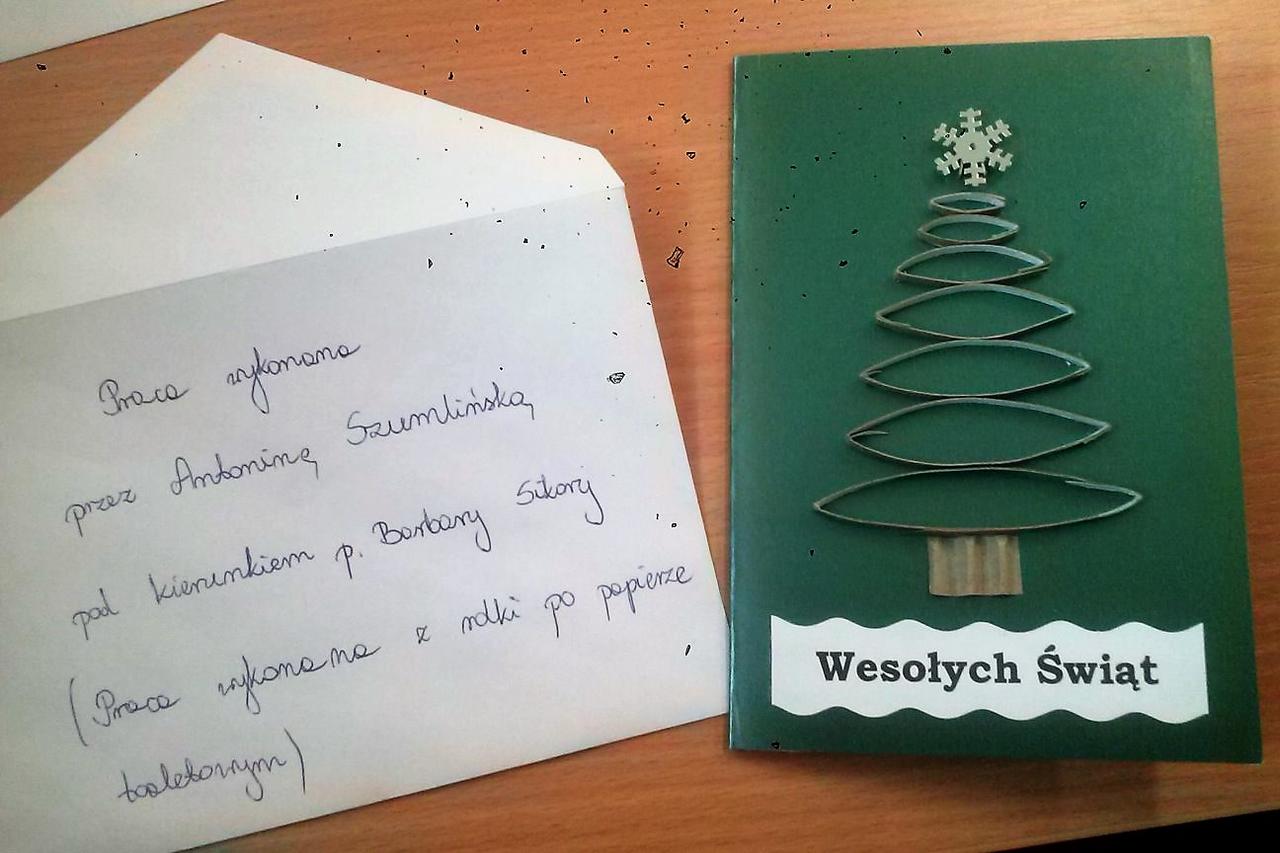 Praca wykonana
przez Antoninę Szumlińską
pod kierunkiem p. Barbary Sikory
(Praca wykonana z rolki po papierze
toaletowym)
Wesołych Świąt